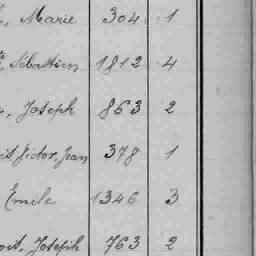 , Marie 304 1
, Sébastien 1812 4
, Joseph 863 2
it Victor, Jean 378 1
Emile 1346 3
oit, Joseph 763 2